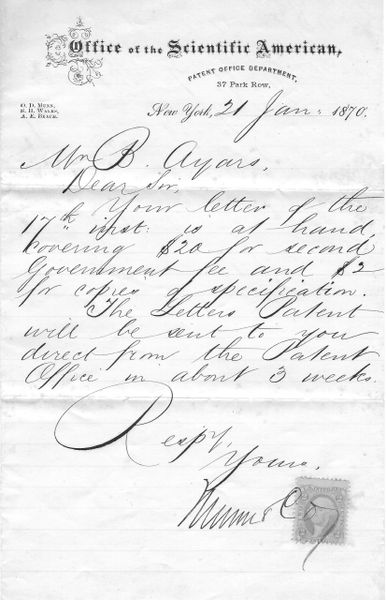 Office of the Scientific American,
PATENT OFFICE DEPARTMENT.
37 Park Row,
O. D. MUNN,
S. H. WALES,
A. E. BEACH.
New York, 21 Jan: 1870.
Mr B. Ayars,
Dear Sir,
Your letter of the
17th inst: is at hand
covering $20 for second
Government fee and $2
for copies of specification.
The Letters Patent
will be sent to you
direct from the Patent
Office in about 3 weeks.
Respy,
Yours,
Munn & Co